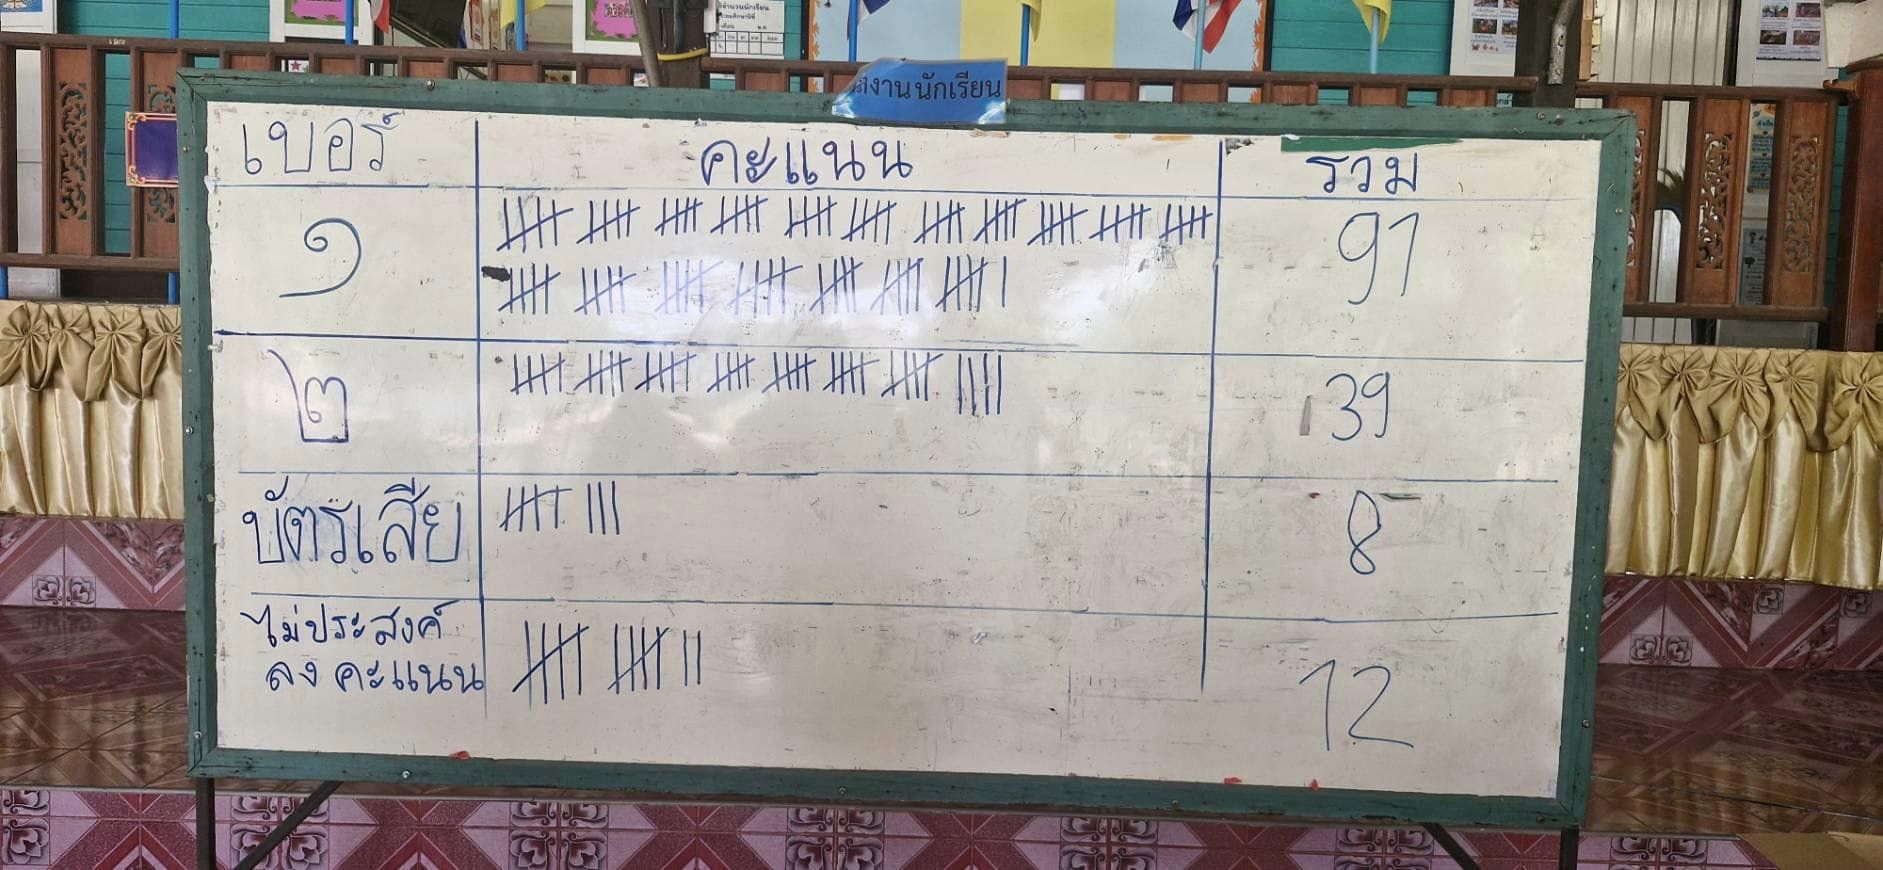 งานนักเรียน
เบอร์ คะแนน รวม
๑ 91
๒ 39
บัตรเสีย 8
ไม่ประสงค์
ลงคะแนน 12